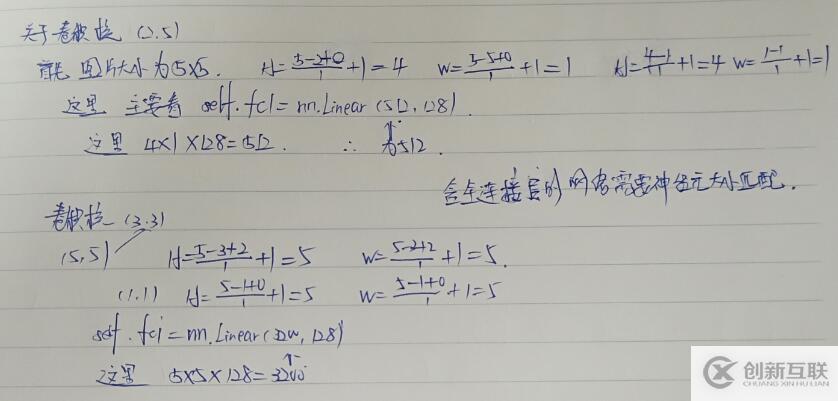 关于卷积核 (2,5)
首先 图片大小为5×5. H=(5-2+0)/1+1=4 W=(5-5+0)/1+1=1 H=(4-1)/1+1=4 W=(1-1)/1+1=1
这里 主要看 self.fc1=nn.Linear(512,128).
这里 4×1×128=512. ∴ 为512.
含全连接层的网络需要神经元大小匹配.
卷积核 (3.3)
(5,5) H=(5-3+2)/1+1=5 W=(5-2+2)/1+1=5.
(1.1) H=(5-1+0)/1+1=5 W=(5-1+0)/1+1=5
self.fc1=nn.Linear(3200,128)
这里 5×5×128=3200
创新互联
CHUANG XIN HU LIAN